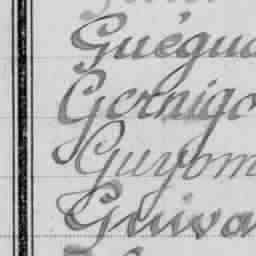 Guégu
Gornigo
Guyom
Guiva